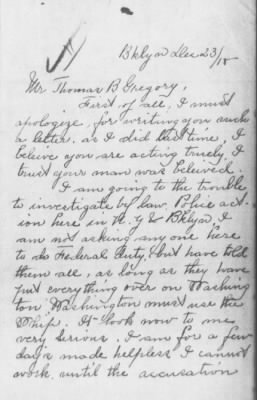 Bklyn Dec 23/18
Mr Thomas B Gregory,
First of all, I must
apologize, for writing you such
a letter. as I did last time, I
beleive you are acting truely. I
trust your man was beleived.
I am going to the trouble
to investigate by law, Police act-
ion here in N.Y & Bklyn. I
am not asking any one here
to do Federal Duty, but have told
them all, as long as they have
put everything over on Washing
ton, Washington must use the
Whip. It look now to me
very serious. I am for a few
days made helpless I cannot
work, until the accusation